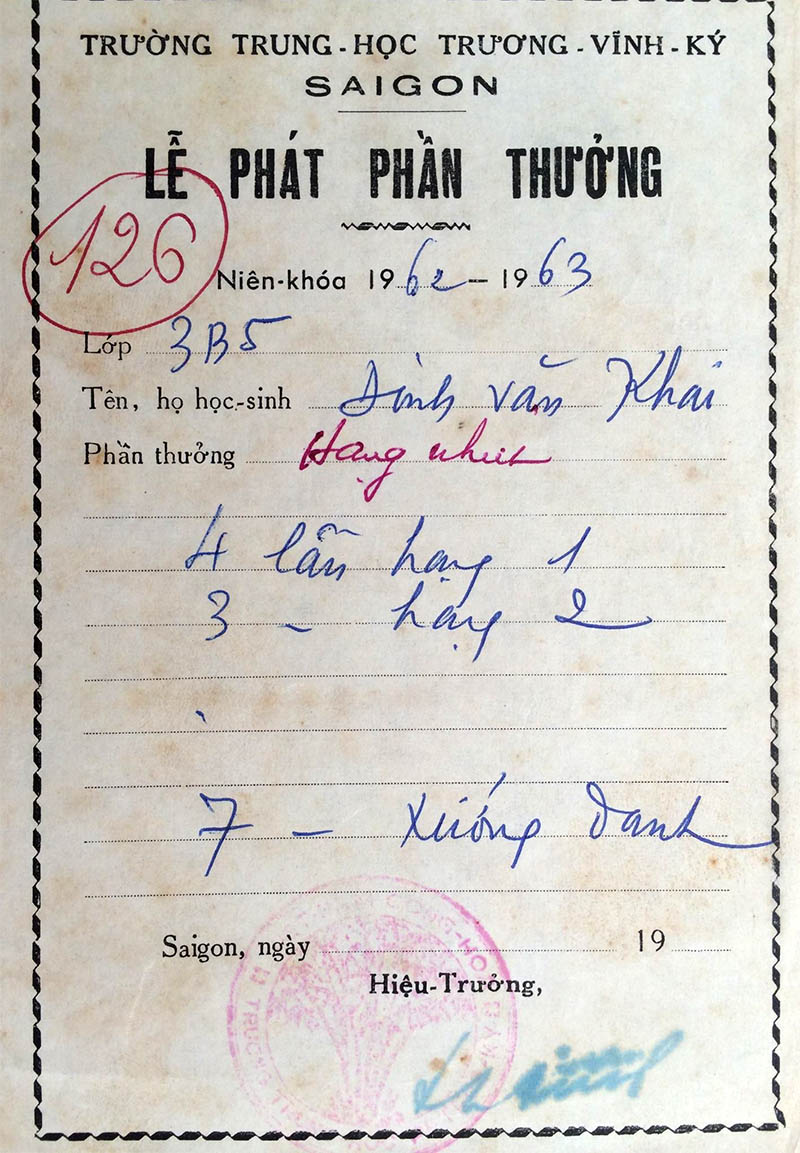 TRƯỜNG TRUNG-HỌC TRƯƠNG-VĨNH-KÝ
SAIGON
LỄ PHÁT PHẦN THƯỞNG
126
Niên-khóa 1962 - 1963
Lớp 3B5
Tên, họ học-sinh Đinh văn Khai
Phần thưởng Hạng nhứt
4 lần hạng 1
3 - hạng 2
7 - Xướng danh
Saigon, ngày 19
Hiệu-Trưởng,